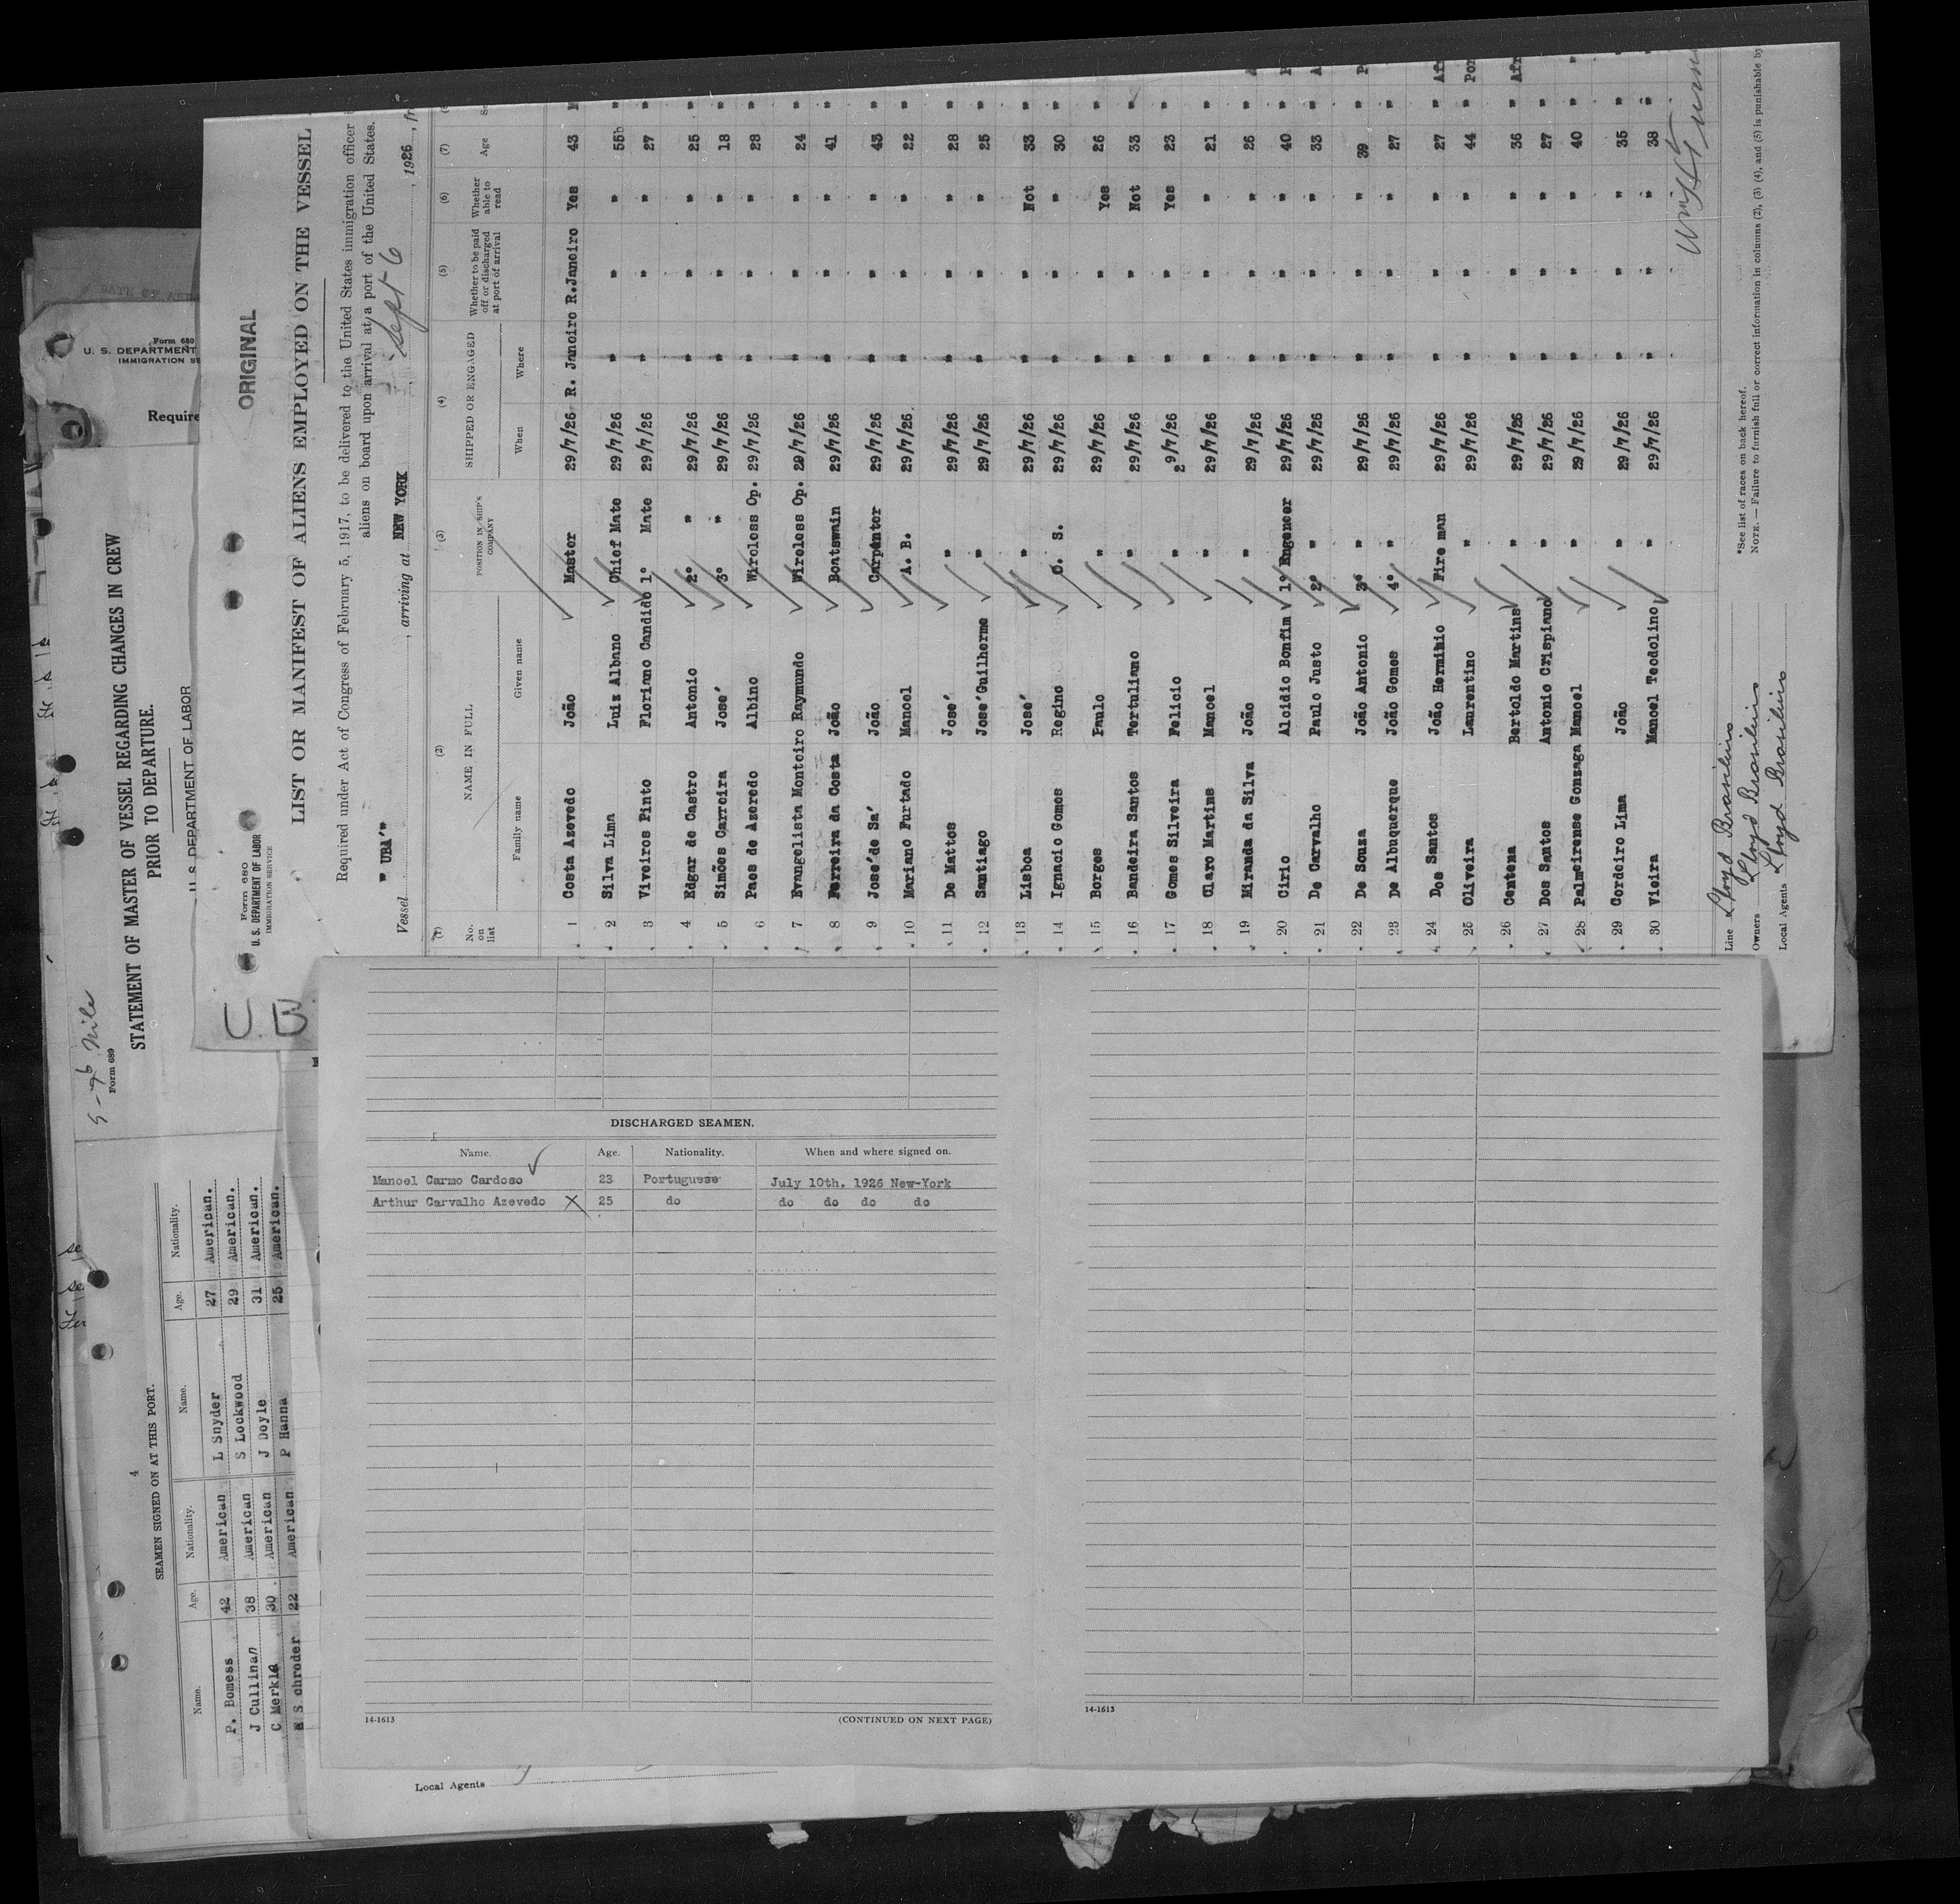 Form 680
U. S. DEPARTMENT
IMMIGRATION SE
Require
Form 689
STATEMENT OF MASTER OF VESSEL REGARDING CHANGES IN CREW
PRIOR TO DEPARTURE.
U. S. DEPARTMENT OF LABOR
4
SEAMEN SIGNED ON AT THIS PORT.
Name. Age. Nationality. Name. Age. Nationality.
P. Bomess 42 American L Snyder 27 American.
J Cullinan 38 American S Lockwood 29 American.
C Merkle 30 American J Doyle 31 American.
S chroder 22 American P Hanna 25 American.
U.B
ORIGINAL
Form 680
U. S. DEPARTMENT OF LABOR
IMMIGRATION SERVICE
LIST OR MANIFEST OF ALIENS EMPLOYED ON THE VESSEL
Required under Act of Congress of February 5, 1917, to be delivered to the United States immigration officer
aliens on board upon arrival at a port of the United States.
Vessel " UBA'" , arriving at NEW YORK , Sept 6 , 1926, fr
(1) (2) (3) (4) (5) (6) (7)
No. on list NAME IN FULL POSITION IN SHIP'S COMPANY SHIPPED OR ENGAGED Whether to be paid off or discharged at port of arrival Whether able to read Age
Family name Given name When Where
1 Costa Azevedo João Master 29/7/26 R. Janeiro R.Janeiro Yes 43
2 Silva Lima Luiz Albano Chief Mate 29/7/26 " " " 55 "
3 Viveiros Pinto Floriano Candido 1º Mate 29/7/26 " " " 27 "
4 Edgar de Castro Antonio 2º " 29/7/26 " " " 25 "
5 Simões Carreira Jose' 3º " 29/7/26 " " " 18 "
6 Paes de Azeredo Albino Wireless Op. 29/7/26 " " " 28 "
7 Evangelista Monteiro Raymundo Wireless Op. 29/7/26 " " " 24 "
8 Ferreira da Costa João Boatswain 29/7/26 " " " 41 "
9 Jose'de Sa' João Carpentor 29/7/26 " " " 43 "
10 Mariano Furtado Manoel A. B. 29/7/26 " " " 22 "
11 De Mattos Jose' " 29/7/26 " " " 28 "
12 Santiago Jose'Guilherme " 29/7/26 " " " 25 "
13 Lisboa Jose' " 29/7/26 " " Not 33 "
14 Ignacio Gomes Regino O. S. 29/7/26 " " " 30 "
15 Borges Paulo " 29/7/26 " " Yes 26 "
16 Bandeira Santos Tertuliano " 29/7/26 " " Not 33 "
17 Gomes Silveira Felicio " 29/7/26 " " Yes 23 "
18 Claro Martins Manoel " 29/7/26 " " " 21 "
19 Miranda da Silva João " 29/7/26 " " " 26 "
20 Cirio Alcidio Bonfim 1º Engeneer 29/7/26 " " " 40 "
21 De Carvalho Paulo Justo 2º " 29/7/26 " " " 33 "
22 De Souza João Antonio 3º " 29/7/26 " " " 39 "
23 De Albuquerque João Gomes 4º " 29/7/26 " " " 27 "
24 Dos Santos João Hermihio Fire man 29/7/26 " " " 27 " Afr
25 Oliveira Laurentino " 29/7/26 " " " 44 " Por
26 Centena Bertoldo Martins " 29/7/26 " " " 36 " Afr
27 Dos Santos Antonio Crispiano " 29/7/26 " " " 27 "
28 Palmeirense Gonzaga Manoel " 29/7/26 " " " 40 " "
29 Cordeiro Lima João " 29/7/26 " " " 35 "
30 Vieira Manoel Teodolino " 29/7/26 " " " 38 "
Line Lloyd Brasileiro
Owners Lloyd Brasileiro
Local Agents Lloyd Brasileiro
*See list of races on back hereof.
NOTE. — Failure to furnish full or correct information in columns (2), (3) (4), and (5) is punishable by
DISCHARGED SEAMEN.
Name. Age. Nationality. When and where signed on.
Manoel Carmo Cardoso 23 Portuguese July 10th. 1926 New-York
Arthur Carvalho Azevedo X 25 do do do do do
14-1613
(CONTINUED ON NEXT PAGE)
14-1613
Local Agents